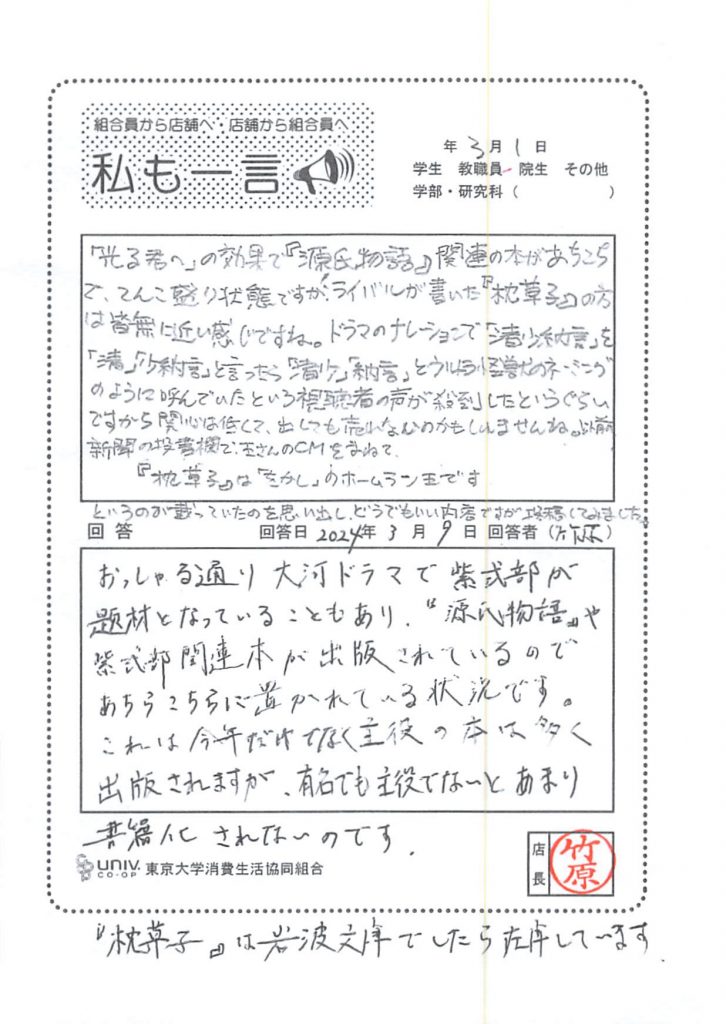 組合員から店舗へ・店舗から組合員へ
私も一言
年 3月 1日
学生 教職員 院生 その他
学部・研究科( )
「光る君へ」の効果で『源氏物語』関連の本があちこち
で、てんこ盛り状態ですが、ライバルが書いた『枕草子』の方
は皆無に近い感じですね。ドラマのナレーションで「清少納言」を
「清」「少納言」と言ったら「清少」「納言」とウルトラ怪獣のネーミング
のように呼んでいたという視聴者の声が殺到したというぐらい
ですから関心は低くて、出しても売れないのかもしれませんね。以前
新聞の投書欄で、王さんのCMをまねて、
『枕草子』は「をかし」のホームラン王です
というのが載っていたのを思い出し、どうでもいい内容ですが投稿してみました。
回答 回答日 2024年 3月 9日 回答者(竹原)
おっしゃる通り大河ドラマで紫式部が
題材となっていることもあり、『源氏物語』や
紫式部関連本が出版されているので
あちらこちらに置かれている状況です。
これは今年だけでなく主役の本は多く
出版されますが、有名でも主役でないとあまり
書籍化されないのです.
UNIV. CO-OP 東京大学消費生活協同組合
店長 竹原
『枕草子』は岩波文庫でしたら在庫しています.